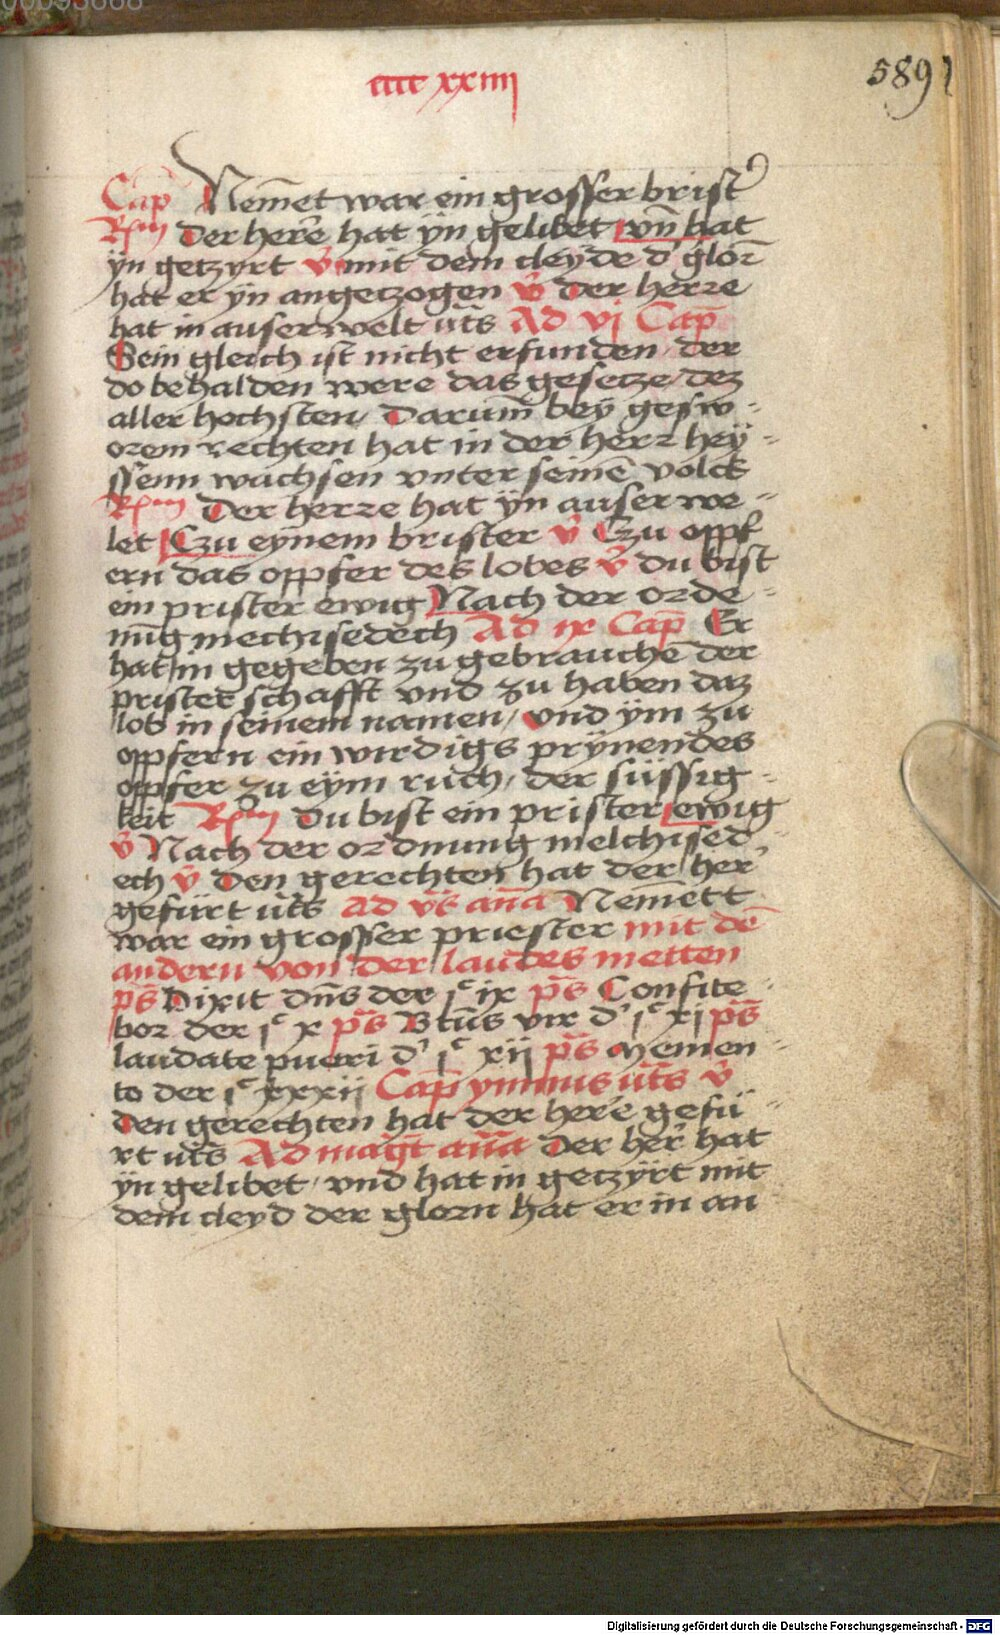 cccc xxiiii
589
Cap̄ Nem̄et war ein grosser brist᷑
R̄m Der her̄e hat ÿn gelibet vn̄ hat
ÿn getzyrt v̄ mit dem cleyde d' glor̄
hat er ÿn angetzogen v̄ Der herre
hat in auserwelt ut̄s Ad vi Cap̄
Sein gleich ist nicht erfunden / der
do behalden were das gesetze / dez
aller hochsten / Darum̄ bey gesw-
orem rechten hat in der herr heÿ-
ssenn wachsen vnter seinē volck
R̄m Der herre hat ÿn auser we-
let Czu eÿnem brister v̄ Czu oppf
ern das oppfer des lobes v̄ du bist
ein prister ewig Nach der orde-
nūg mechisedech Ad ix Cap̄ Er
hat in gegeben zu gebrauchē der
pristerschafft vnd zu haben daz
lob in seinem namen / vnd ÿm zu
oppfern ein wirdigs prÿnendes
oppfer zu eÿm ruch / der süssig-
keit R̄m Du bist ein prister ewig
v̄ Nach der ordnung melchised-
ech v̄ Den gerechten hat der her'
gefürt ut̄s Ad v̄s an̄a Nem̄ett
war ein grosser priester mit dē
andern von der laudes metten
ps̄ Dixit dn̄s der jᶜ ix ps̄ Confite-
bor der jᶜ x ps̄ Btūs vir d' jᶜ xj ps̄
laudate pueri d' jᶜ xij ps̄ Memen-
to der jᶜ xxxij Cap̄ ymnus ut̄s v̄
Den gerechten hat der her̄e gefü-
rt ut̄s Ad maḡt an̄a Der her' hat
ÿn gelibet / vnd hat in getzyrt mit
dem cleyd der glorn hat er in an
Digitalisierung gefördert durch die Deutsche Forschungsgemeinschaft - DFG